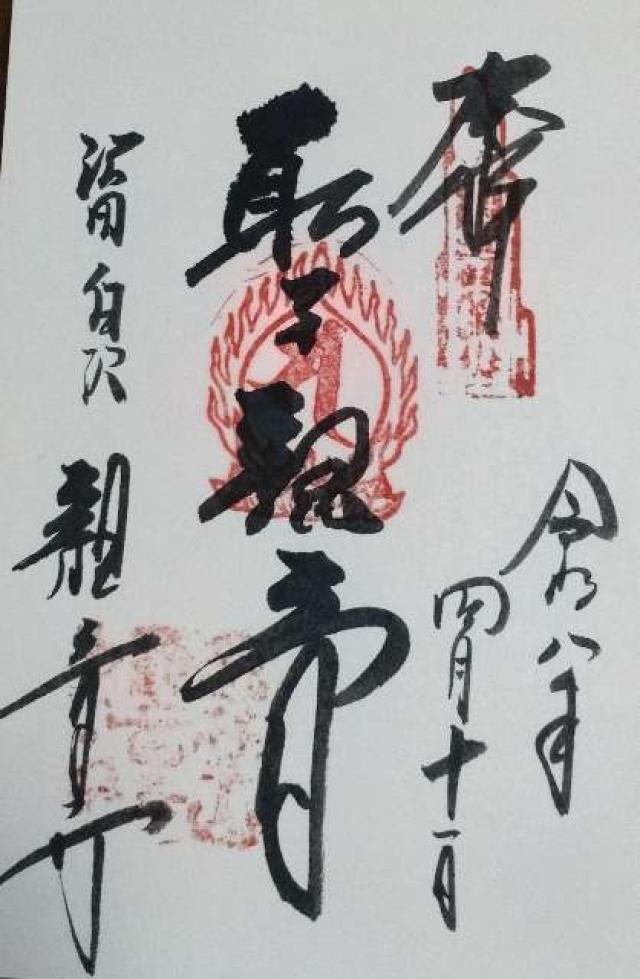 奉拝
令和八年
四月十一日
聖観音
沼田白沢 観音寺